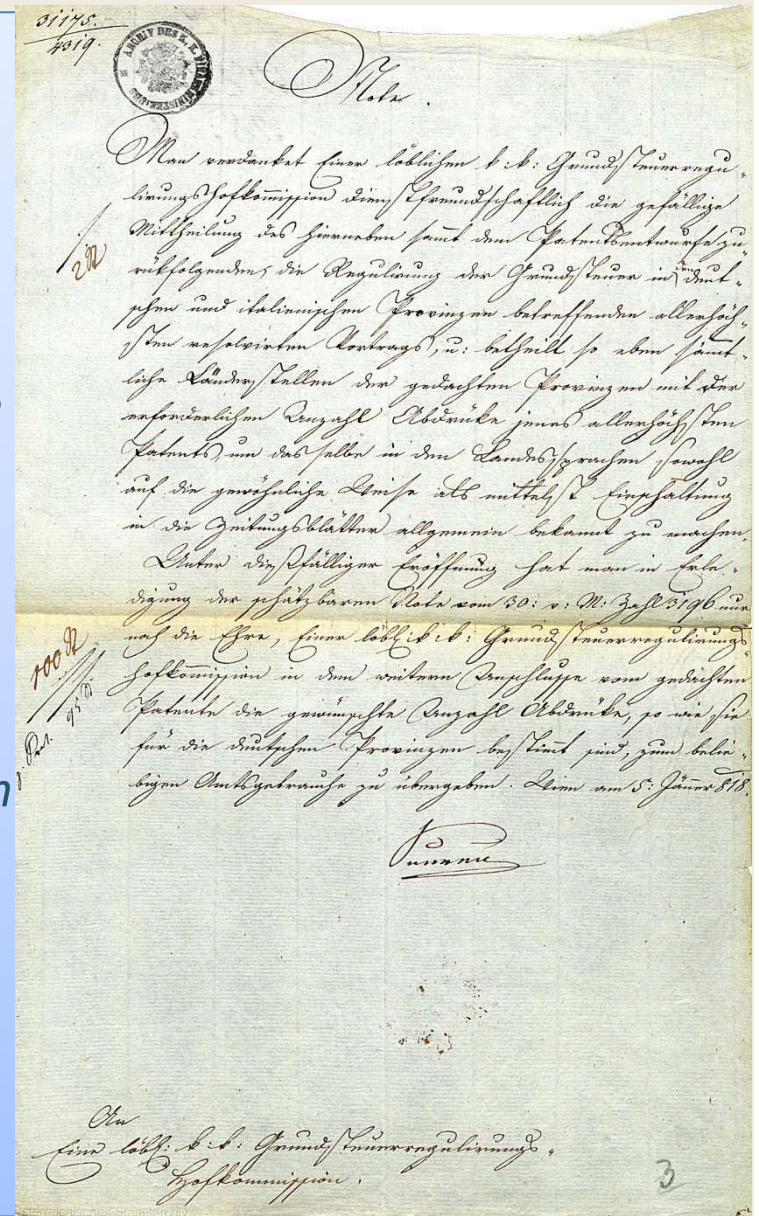 31175.
4319.
ARCHIV DES K. K. FINANZMINISTERIUMS
Note.
Man verdanket Einer löblichen k: k: Grundsteuerregu-
lirungshofkommission dienstfreundschaftlich die gefällige
Mittheilung des hierneben sammt dem Patentsentwurfe zu-
rükfolgenden, die Regulirung der Grundsteuer in den deut-
schen und italienischen Provinzen betreffenden allerhöch-
sten resolvirten Vortrags, u: betheilt so eben sämmt-
liche Länderstellen der gedachten Provinzen mit der
erforderlichen Anzahl Abdrüke jenes allerhöchsten
Patents, um dasselbe in den Landessprachen sowohl
auf die gewöhnliche Weise als mittelst Einschaltung
in die Zeitungsblätter allgemein bekannt zu machen.
Unter dießfälliger Eröffnung hat man in Erle-
digung der schätzbaren Note vom 30: v: M: Zahl 3196 nur
noch die Ehre, Einer löbl: k: k: Grundsteuerregulirungs-
hofkommission in dem weitern Anschlusse vom gedachten
Patente die gewünschte Anzahl Abdrüke, so wie sie
für die deutschen Provinzen bestimt sind, zum belie-
bigen Amtsgebrauche zu übergeben. Wien am 5: Jänner 818.
2
100
95
An
Eine löbl: k: k: Grundsteuerregulirungs-
Hofkommission.
3
n